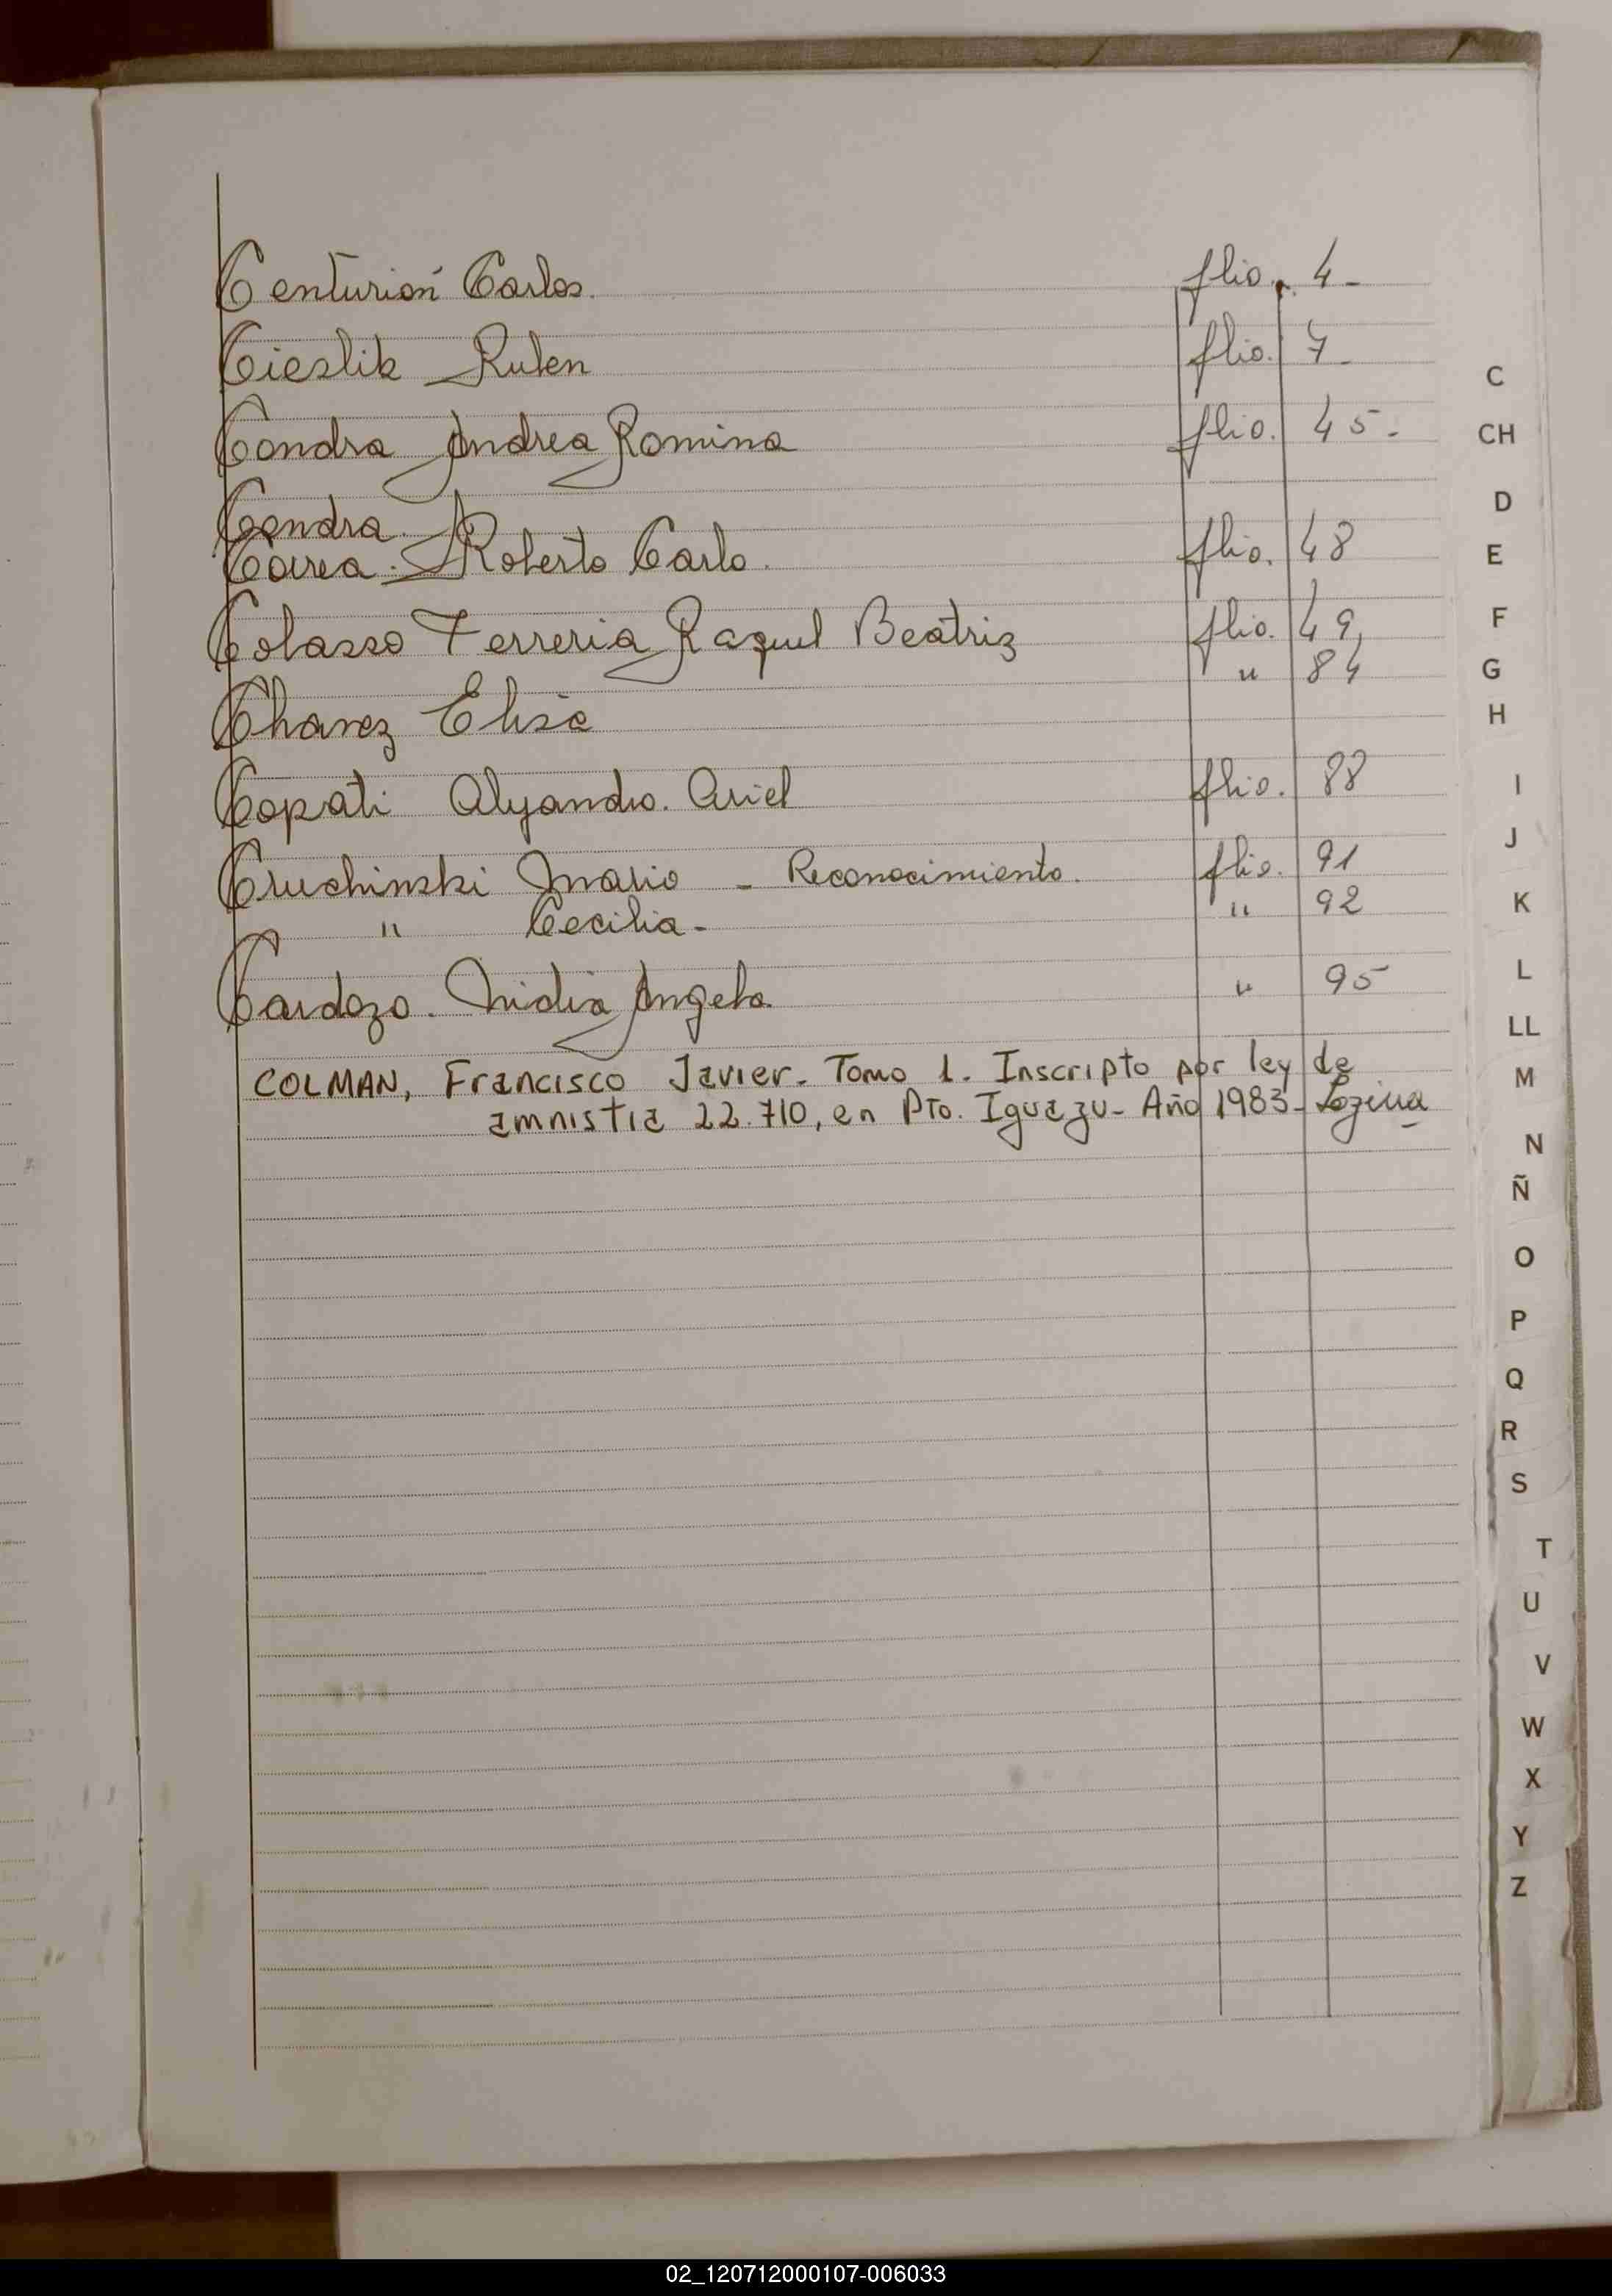 Centurión Carlos. flio. 4-
Cieslik Ruben flio. 7-
Condra Andrea Romina flio. 45-
Condra.
Correa. Roberto Carlo. flio. 48
Colasso Ferreria Raquel Beatriz flio. 49
" 84
Chavez Elisa
Copati Alejandro. Ariel flio. 88
Cruchinski Mario - Reconocimiento. flio. 91
" Cecilia- " 92
Cardozo. Nidia Angela. " 95
COLMAN, Francisco Javier- Tomo 1. Inscripto por ley de
amnistia 22.710, en Pto. Iguazu- Año 1983-
C
CH
D
E
F
G
H
I
J
K
L
LL
M
N
Ñ
O
P
Q
R
S
T
U
V
W
X
Y
Z
02_120712000107-006033